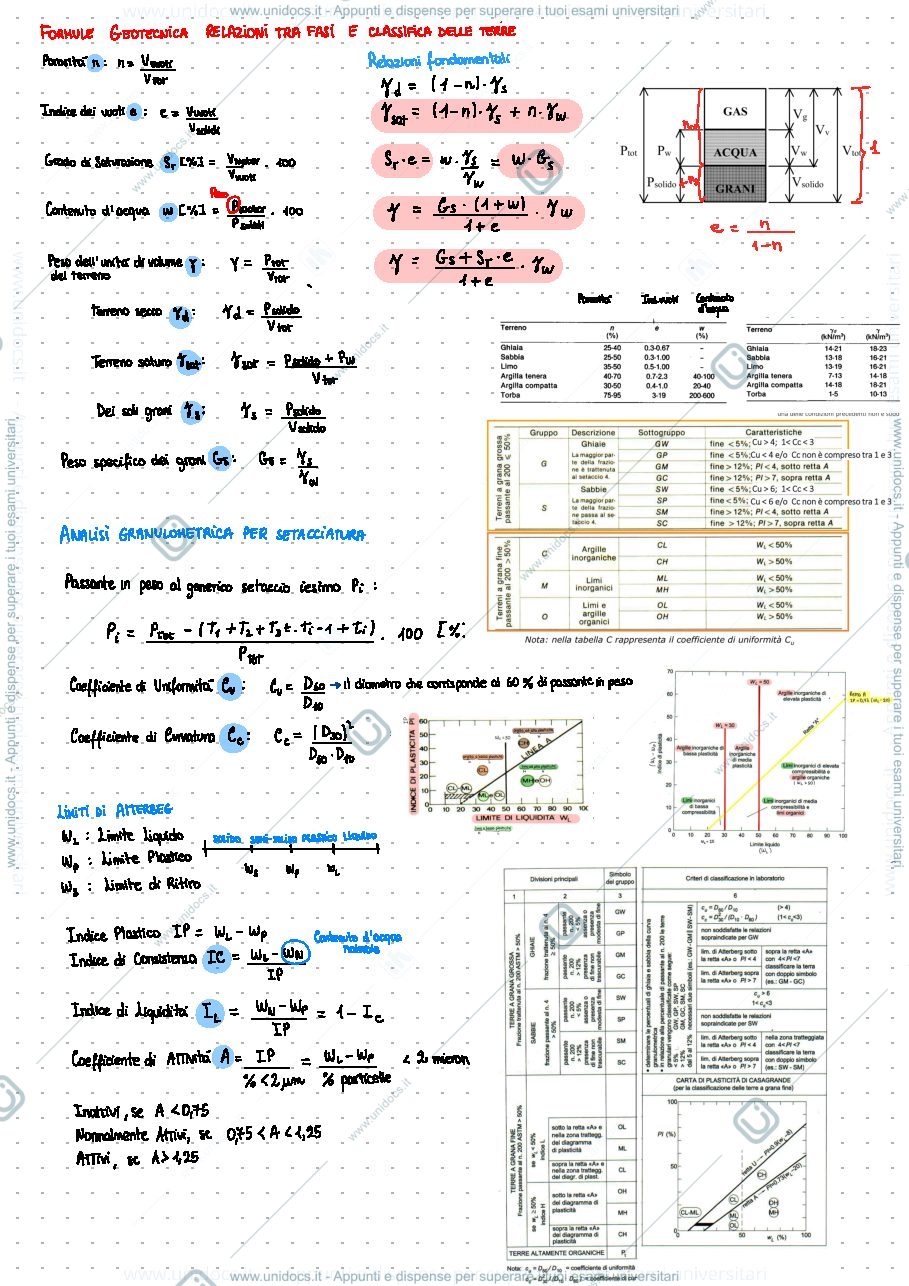 www.unidocs.it - Appunti e dispense per superare i tuoi esami universitari
FORMULE GEOTECNICA RELAZIONI TRA FASI E CLASSIFICA DELLE TERRE
Porosità n: n = Vvuoti / Vtot
Indice dei vuoti e: e = Vvuoti / Vsolidi
Grado di Saturazione Sr [%] = Vwater / Vvuoti · 100
Contenuto d'acqua w [%] = Pwater / Psolidi · 100
Peso dell'unità di volume γ: γ = Ptot / Vtot
del terreno
Terreno secco γd: γd = Psolido / Vtot
Terreno saturo γsat: γsat = Psolido + Pw / Vtot
Dei soli grani γs: γs = Psolido / Vsolido
Peso specifico dei grani Gs: Gs = γs / γw
Relazioni fondamentali
γd = (1-n)·γs
γsat = (1-n)·γs + n·γw
Sr·e = w·γs / γw = w·Gs
γ = Gs·(1+w) / 1+e · γw
γ = Gs+Sr·e / 1+e · γw
GAS
ACQUA
GRANI
Ptot Pw Psolido
Vg Vw Vv Vsolido Vtot 1
e = n / 1-n
Porosità Ind. vuoti Contenuto d'acqua
Terreno n (%) e w (%)
Ghiaia 25-40 0.3-0.67 -
Sabbia 25-50 0.3-1.00 -
Limo 35-50 0.5-1.00 -
Argilla tenera 40-70 0.7-2.3 40-100
Argilla compatta 30-50 0.4-1.0 20-40
Torba 75-95 3-19 200-600
Terreno γd (kN/m³) γ (kN/m³)
Ghiaia 14-21 18-23
Sabbia 13-18 16-21
Limo 13-19 16-21
Argilla tenera 7-13 14-18
Argilla compatta 14-18 18-21
Torba 1-5 10-13
Gruppo Descrizione Sottogruppo Caratteristiche
Terreni a grana grossa passante al 200 ≤ 50%
G Ghiaie
La maggior parte della frazione è trattenuta al setaccio 4.
GW fine <5%; Cu > 4; 1< Cc < 3
GP fine <5%; Cu < 4 e/o Cc non è compreso tra 1 e 3
GM fine >12%; PI <4, sotto retta A
GC fine >12%; PI >7, sopra retta A
S Sabbie
La maggior parte della frazione passa al setaccio 4.
SW fine <5%; Cu > 6; 1< Cc < 3
SP fine <5%; Cu < 6 e/o Cc non è compreso tra 1 e 3
SM fine >12%; PI <4, sotto retta A
SC fine >12%; PI >7, sopra retta A
Terreni a grana fine passante al 200 > 50%
C Argille inorganiche CL WL <50%
CH WL >50%
M Limi inorganici ML WL <50%
MH WL >50%
O Limi e argille organici OL WL <50%
OH WL >50%
Nota: nella tabella C rappresenta il coefficiente di uniformità Cu
ANALISI GRANULOMETRICA PER SETACCIATURA
Passante in peso al generico setaccio iesimo Pi:
Pi = Ptot - (T1 + T2 + T3 + Ti-1 + Ti) / Ptot · 100 [%]
Coefficiente di Uniformità Cu: Cu = D60 / D10 → il diametro che corrisponde al 60 % di passante in peso
Coefficiente di Curvatura Cc: Cc = (D30)² / D60 · D10
INDICE DI PLASTICITÀ PI
LINEA A
CL CH CL-ML ML e OL MH e OH
LIMITE DI LIQUIDITÀ WL
WL = 30 WL = 50
Retta "A"
Argille inorganiche di elevata plasticità
Argille inorganiche di bassa plasticità
Argille inorganiche di media plasticità
Limi inorganici di bassa compressibilità
Limi inorganici di elevata compressibilità e argille organiche
Limi inorganici di media compressibilità e limi organici
Indice di plasticità
Limite liquido
LIMITI DI ATTERBEG
WL : Limite Liquido
WP : Limite Plastico
WS : Limite di Ritiro
SOLIDO SEMI-SOLIDO PLASTICO LIQUIDO
WS WP WL
Indice Plastico IP = WL - WP
Indice di Consistenza IC = WL - WN / IP
Contenuto d'acqua naturale
Indice di Liquidità IL = WN - WP / IP = 1 - Ic
Coefficiente di Attività A = IP / % < 2 μm = WL - WP / % particelle < 2 micron
Inattivi, se A < 0,75
Normalmente Attivi, se 0,75 < A < 1,25
ATTIVI, se A > 1,25
Divisioni principali Simbolo del gruppo Criteri di classificazione in laboratorio
1 2 3 6
TERRE A GRANA GROSSA
Frazione trattenuta al n. 200 ASTM > 50%
GHIAIE
frazione trattenuta al n. 4 ≥ 50%
GW
GP
GM
GC
SABBIE
frazione passante al n. 4 > 50%
SW
SP
SM
SC
cu = D60 / D10 (> 4)
non soddisfatte le relazioni sopraindicate per GW
lim. di Atterberg sotto la retta «A» o PI < 4
lim. di Atterberg sopra la retta «A» o PI > 7
sopra la retta «A» con 4<PI<7 classificare la terra con doppio simbolo (es.: GM - GC)
cu > 6
1< cc<3
non soddisfatte le relazioni sopraindicate per SW
lim. di Atterberg sotto la retta «A» o PI < 4
lim. di Atterberg sopra la retta «A» o PI > 7
nella zona tratteggiata con 4<PI<7 classificare la terra con doppio simbolo (es.: SW - SM)
TERRE A GRANA FINE
Frazione passante al n. 200 ASTM > 50%
se wL < 50% indice L
sotto la retta «A» e nella zona tratteg. del diagramma di plasticità
OL
ML
sopra la retta «A» e nella zona tratteg. del diagr. di plast.
CL
se wL ≥ 50% indice H
sotto la retta «A» del diagramma di plasticità
OH
MH
sopra la retta «A» del diagramma di plasticità
CH
TERRE ALTAMENTE ORGANICHE Pt
CARTA DI PLASTICITÀ DI CASAGRANDE
(per la classificazione delle terre a grana fine)
PI (%)
retta U → PI=0.9(wL-8)
retta A → PI=0.73(wL-20)
CL-ML CL ML OL CH OH MH
wL (%)
Nota: cu = D60 / D10 = coefficiente di uniformità
www.unidocs.it - Appunti e dispense per superare i tuoi esami universitari